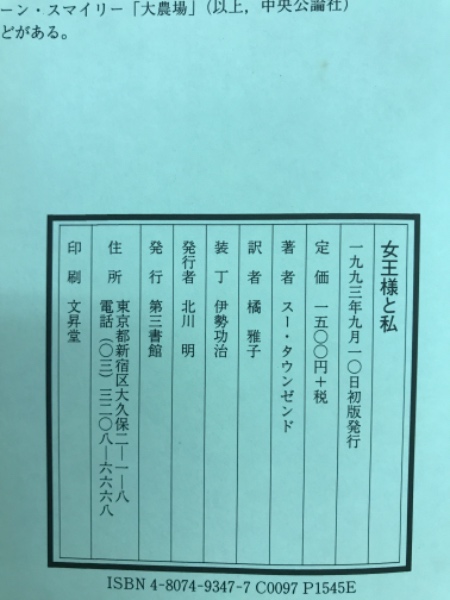 ーン・スマイリー「大農場」(以上，中央公論社)
どがある。
女王様と私
一九九三年九月一〇日初版発行
定価 一五〇〇円＋税
著者 スー・タウンゼンド
訳者 橘 雅子
装丁 伊勢功治
発行者 北川 明
発行 第三書館
住所 東京都新宿区大久保二―一―八
電話(〇三)三二〇八―六六六八
印刷 文昇堂
ISBN 4-8074-9347-7 C0097 P1545E